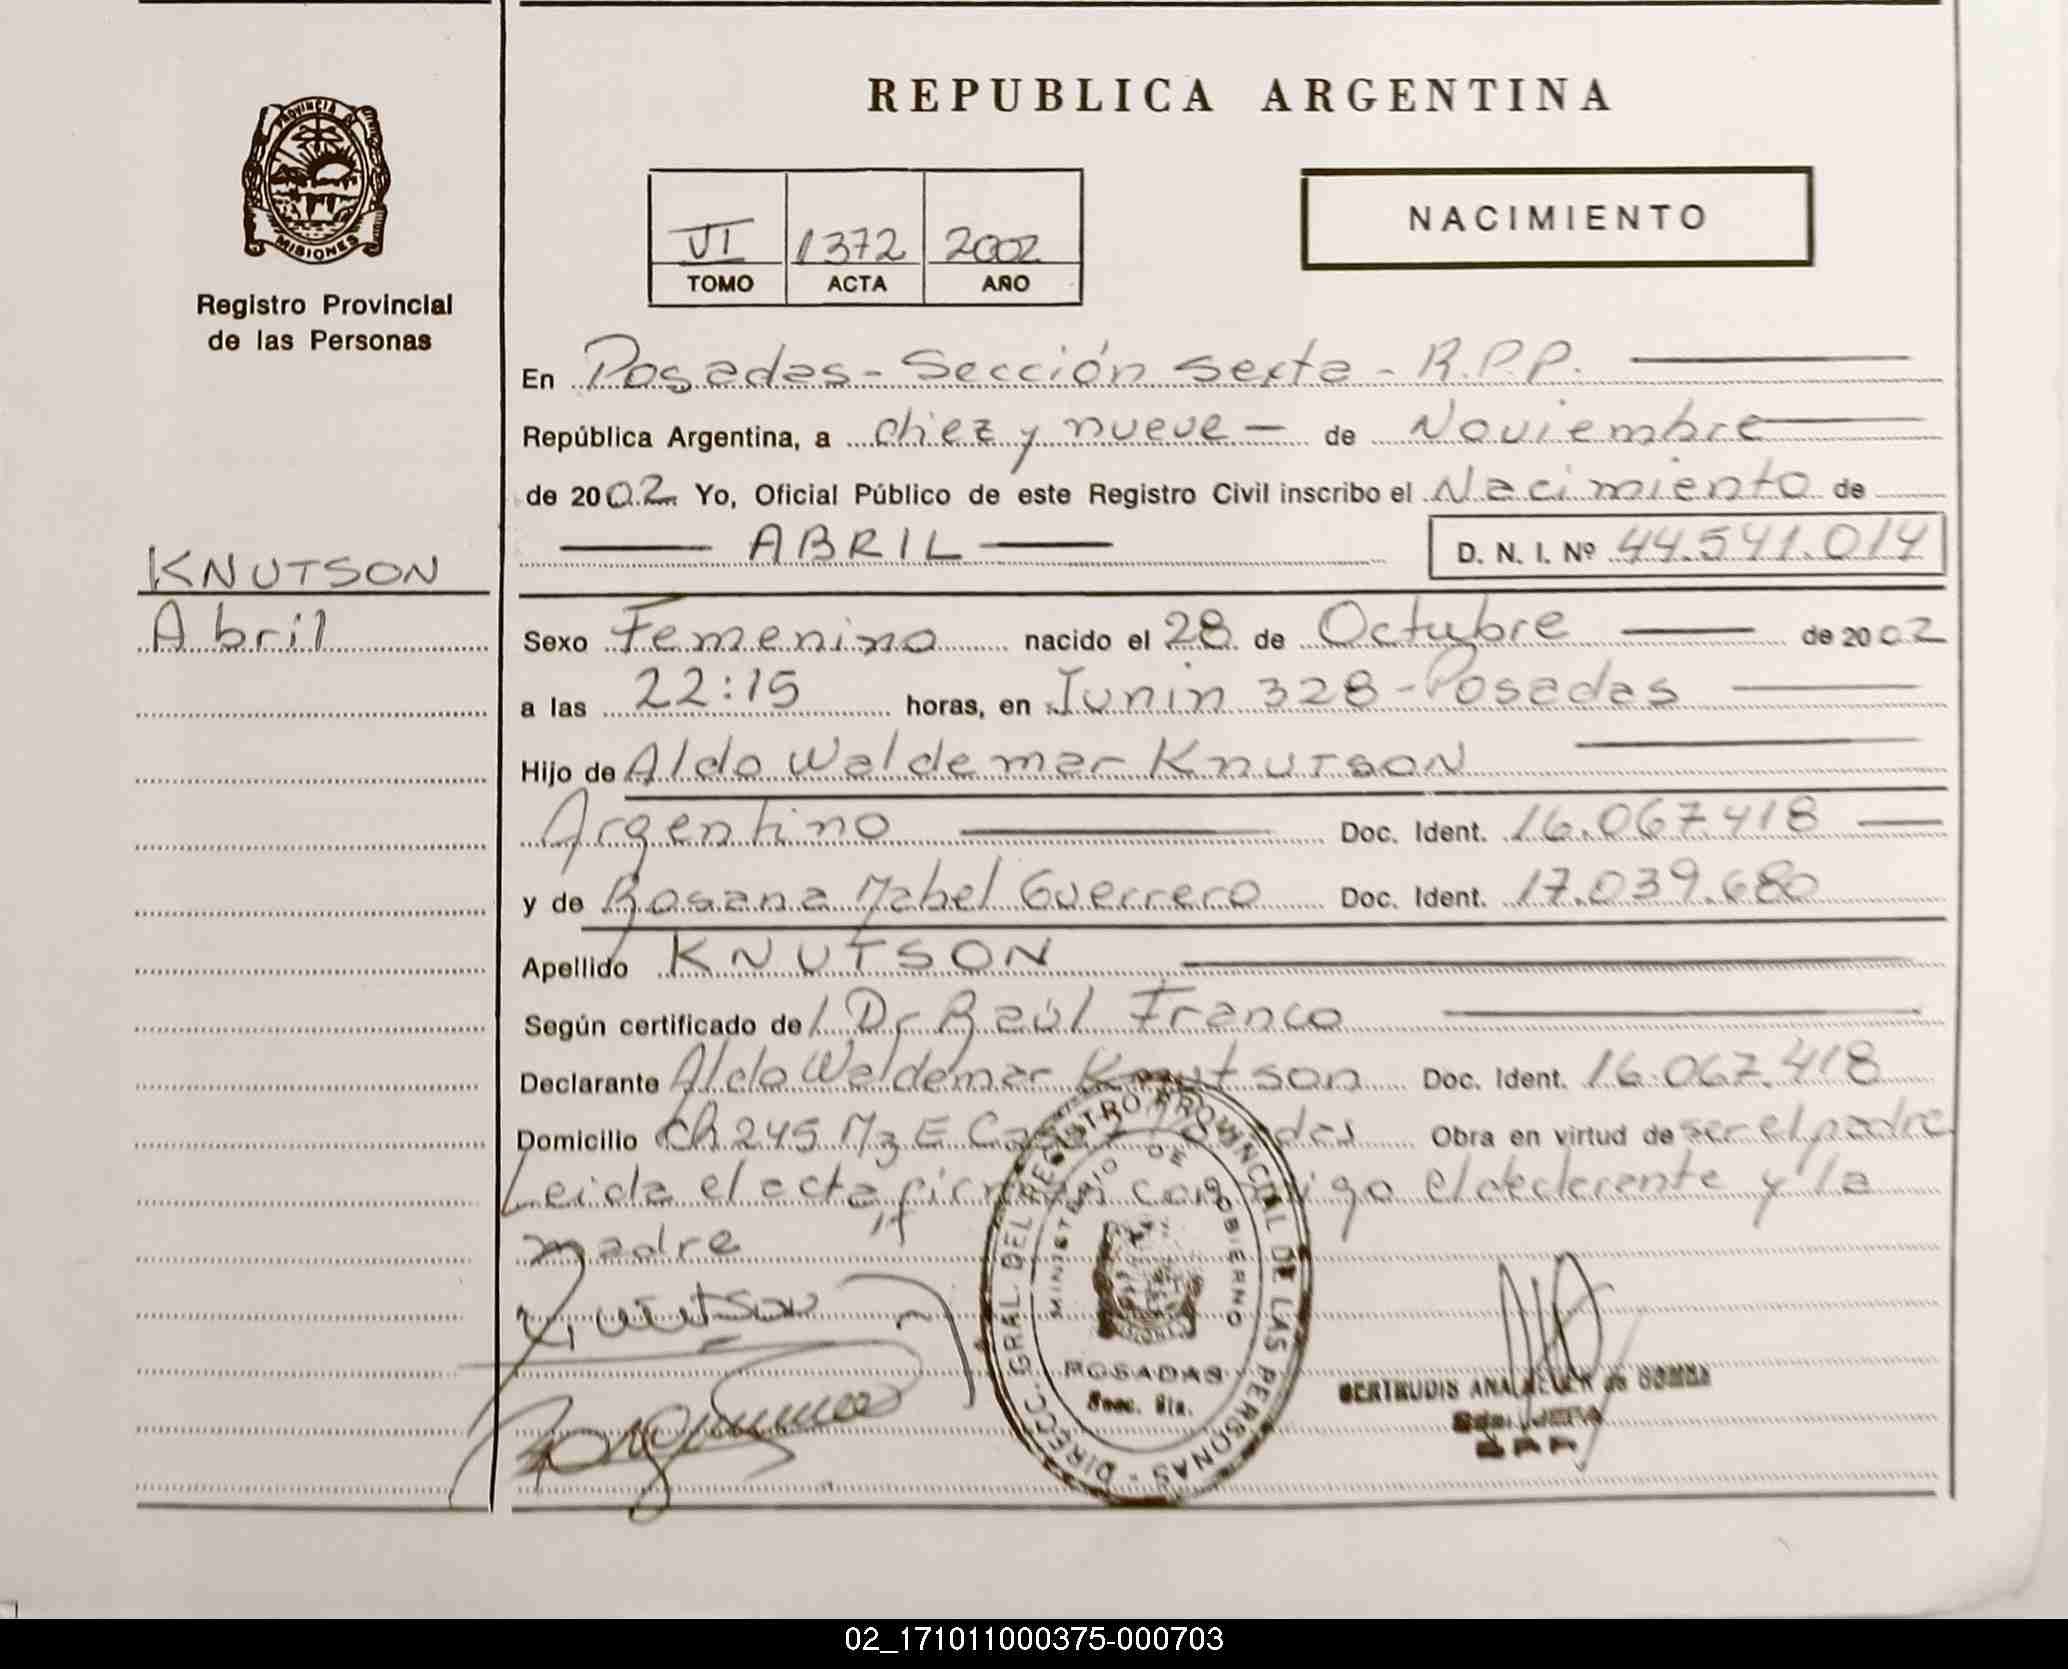 REPUBLICA ARGENTINA
PROVINCIA DE
MISIONES
Registro Provincial
de las Personas
VI 1372 2002
TOMO ACTA AÑO
NACIMIENTO
En Posadas - Sección sexta - R.P.P.
República Argentina, a diez y nueve de Noviembre
de 2002 Yo, Oficial Público de este Registro Civil inscribo el Nacimiento de
ABRIL D. N. I. Nº 44.541.014
KNUTSON
Abril
Sexo Femenino nacido el 28 de Octubre de 2002
a las 22:15 horas, en Junin 328 - Posadas
Hijo de Aldo Waldemar Knutson
Argentino Doc. Ident. 16.067.418
y de Rosana Mabel Guerrero Doc. Ident. 17.039.680
Apellido KNUTSON
Según certificado de l Dr Raúl Franco
Declarante Aldo Waldemar Knutson Doc. Ident. 16.067.418
Domicilio Ch 245 Mz E Casa Obra en virtud de ser el padre
Leida el acta firman conmigo el declarante y la
madre
Knutson
DIRECC. GRAL. DEL REGISTRO PROVINCIAL DE LAS PERSONAS
MINISTERIO DE GOBIERNO
POSADAS
Secc. 6ta.
GERTRUDIS ANA
02_171011000375-000703